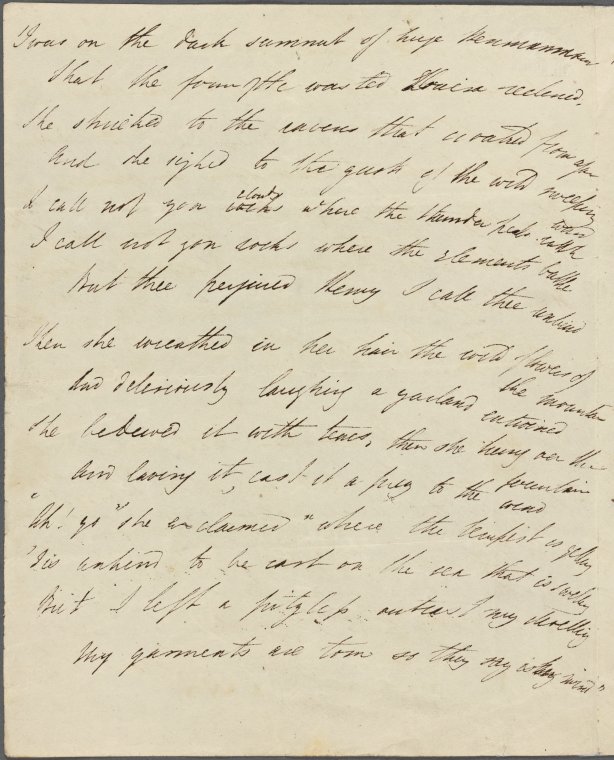 'Twas on the dark summit of huge Penmanmawr
That the form of the wasted Louisa reclined,
She shrieked to the ravens that croaked from afar
And she sighed to the gusts of the wild sweeping wind
I call not yon clouds where the thunder peals rattle
I call not yon rocks where the elements battle
But thee perjured Henry I call thee unkind
Then she wreathed in her hair the wild flowers of the mountain
And deliriously laughing a garland entwined
She bedewed it with tears, then she hung oer the fountain
And laving it, cast it a prey to the wind
"Ah! go" she exclaimed "where the tempest is yelling
'Tis unkind to be cast on the sea that is swelling
But I left a pityless outcast my dwelling
My garments are torn so they say is my mind"